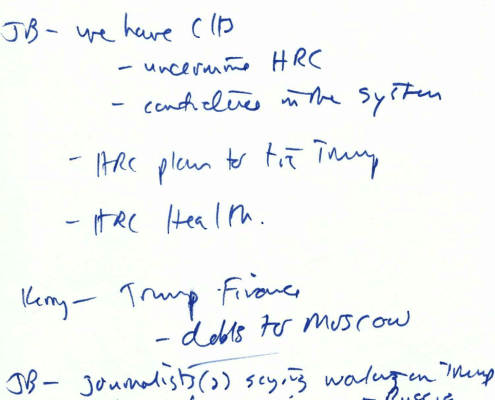 JB - we have
- undermine HRC
- candidates in the system
- HRC plan to Trump
- HRC Health.
Kerry - Trump Finance
- debts to Moscow
JB - journalists(2) saying working on Trump
- Russia